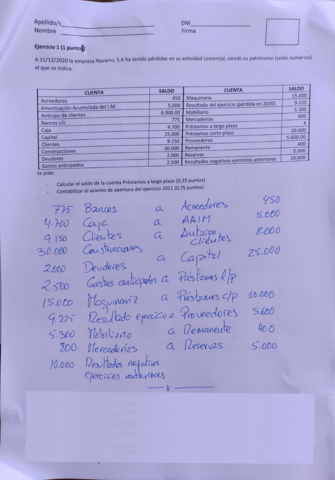 Apellido/s
DNI
Nombre
Firma
Ejercicio 1 (1 punto)
A 31/12/2020 la empresa Navarro, S.A ha tenido pérdidas en su actividad comercial, siendo su patrimonio (saldo numérico) el que se indica.
CUENTA SALDO CUENTA SALDO
Acreedores 450 Maquinaria 15.000
Amortización Acumulada del I.M. 5.000 Resultado del ejercicio (pérdida en 2020) 9.225
Anticipo de clientes 8.000,00 Mobiliario 5.300
Bancos c/c 775 Mercaderías 800
Caja 4.700 Préstamos a largo plazo X
Capital 25.000 Préstamos corto plazo 10.000
Clientes 9.150 Proveedores 5.600,00
Construcciones 30.000 Remanente 400
Deudores 2.000 Reservas 5.000
Gastos anticipados 2.500 Resultados negativos ejercicios anteriores 10,000
Se pide:
- Calcular el saldo de la cuenta Préstamos a largo plazo (0,25 puntos)
- Contabilizar el asiento de apertura del ejercicio 2021 (0,75 puntos)
775 Bancos a Acreedores 450
4.700 Caja a AAIM 5.000
9.150 Clientes a Anticipo Clientes 8.000
30.000 Construcciones a Capital 25.000
2.000 Deudores
2.500 Gastos anticipados a Préstamos l/p
15.000 Maquinaria a Préstamos c/p 10.000
9.225 Resultado ejercicio a Proveedores 5.600
5.300 Mobiliario a Remanente 400
800 Mercaderías a Reservas 5.000
10.000 Resultados negativos
ejercicios anteriores
x